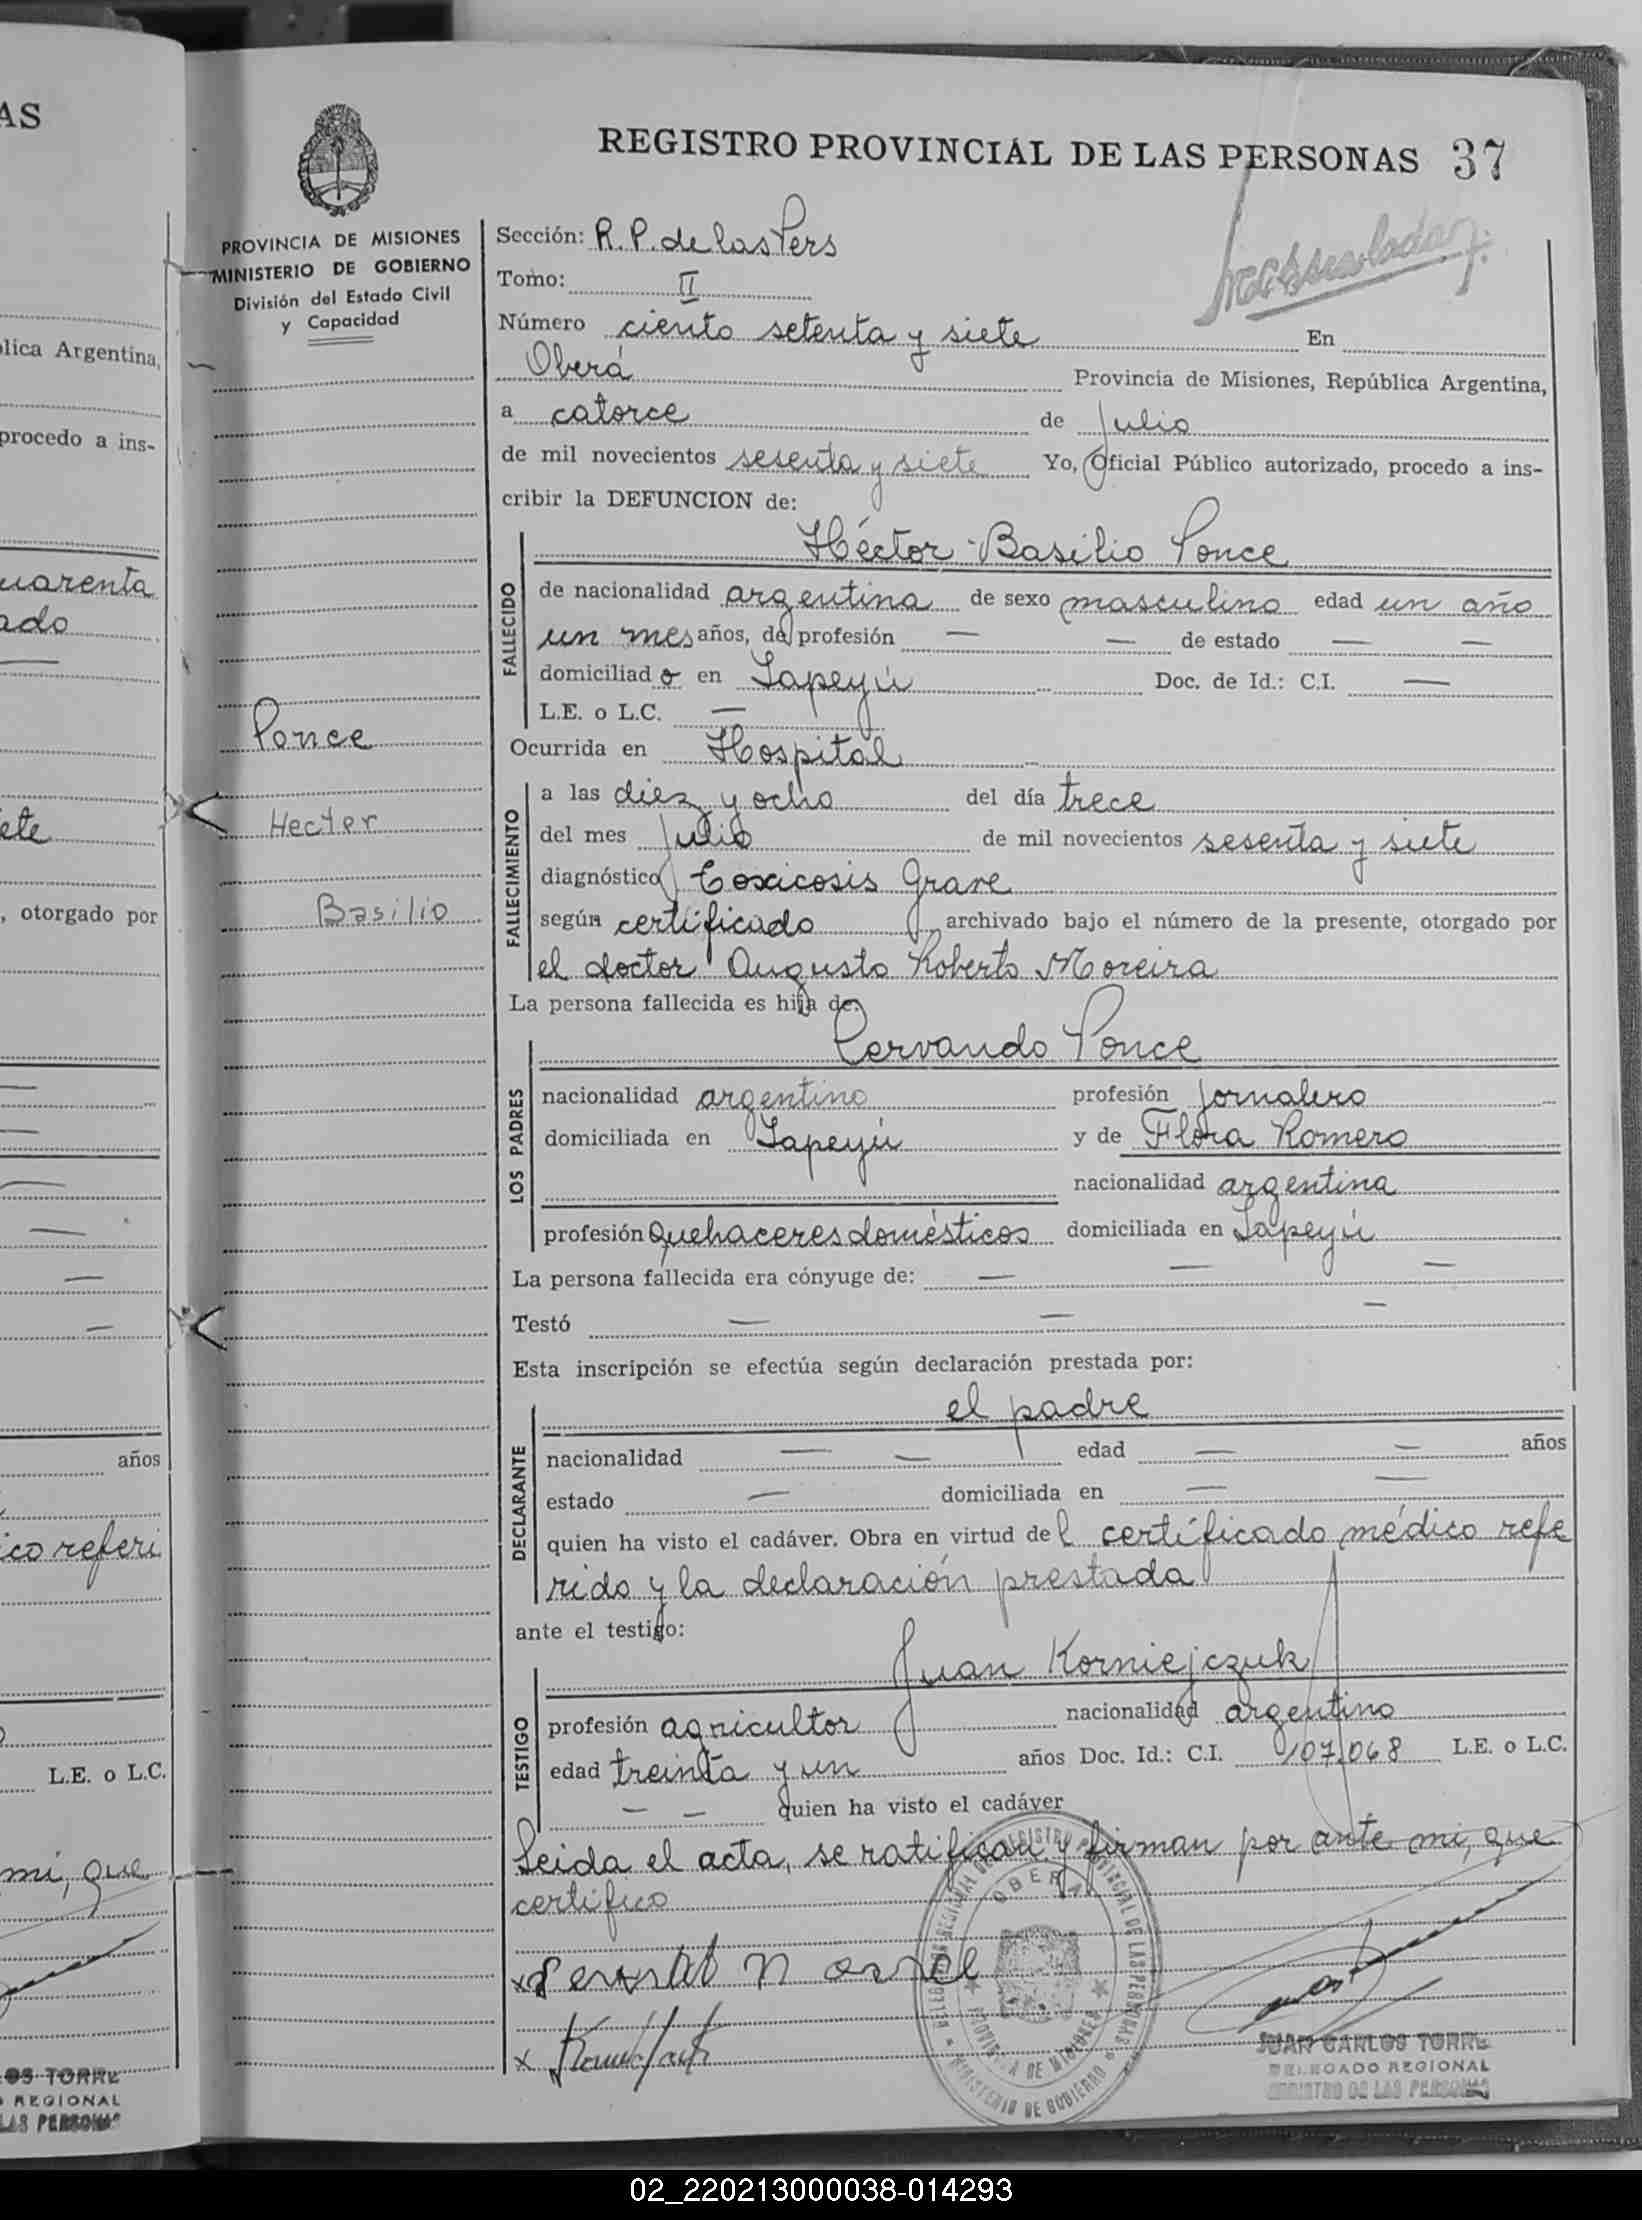 AS
REGISTRO PROVINCIAL DE LAS PERSONAS 37
PROVINCIA DE MISIONES
MINISTERIO DE GOBIERNO
División del Estado Civil
y Capacidad
Sección: R. P. de las Pers
Tomo: II
Número ciento setenta y siete En
Oberá Provincia de Misiones, República Argentina,
a catorce de Julio
de mil novecientos sesenta y siete Yo, Oficial Público autorizado, procedo a ins-
cribir la DEFUNCION de:
FALLECIDO
Héctor Basilio Ponce
de nacionalidad argentina de sexo masculino edad un año
un mes años, de profesión — — de estado — —
domiciliado en Yapeyú Doc. de Id.: C.I. —
L.E. o L.C. —
Ponce
Ocurrida en Hospital
FALLECIMIENTO
a las diez y ocho del día trece
Hecter
del mes Julio de mil novecientos sesenta y siete
diagnóstico Toxicosis Grave
Basilio
según certificado archivado bajo el número de la presente, otorgado por
el doctor Augusto Roberto Moreira
La persona fallecida es hija de:
LOS PADRES
Cervando Ponce
nacionalidad argentino profesión Jornalero
domiciliada en Yapeyú y de Flora Romero
nacionalidad argentina
profesión Quehaceres domésticos domiciliada en Yapeyú
La persona fallecida era cónyuge de: — — —
Testó — — —
Esta inscripción se efectúa según declaración prestada por:
DECLARANTE
el padre
nacionalidad — — edad — — años
estado — domiciliada en — —
quien ha visto el cadáver. Obra en virtud del certificado médico refe
rido y la declaración prestada
ante el testigo:
TESTIGO
Juan Korniejczuk
profesión agricultor nacionalidad argentino
edad treinta y un años Doc. Id.: C.I. 107.068 L.E. o L.C.
— — quien ha visto el cadáver
Leida el acta, se ratifican y firman por ante mi, que
certifico
OBERA
PROVINCIA DE MISIONES
MINISTERIO DE GOBIERNO
JUAN CARLOS TORRE
DELEGADO REGIONAL
REGISTRO DE LAS PERSONAS
blica Argentina,
procedo a ins-
cuarenta
ado
ete
, otorgado por
años
ico referi
L.E. o L.C.
mi, que
OS TORRE
REGIONAL
LAS PERSONAS
02_220213000038-014293